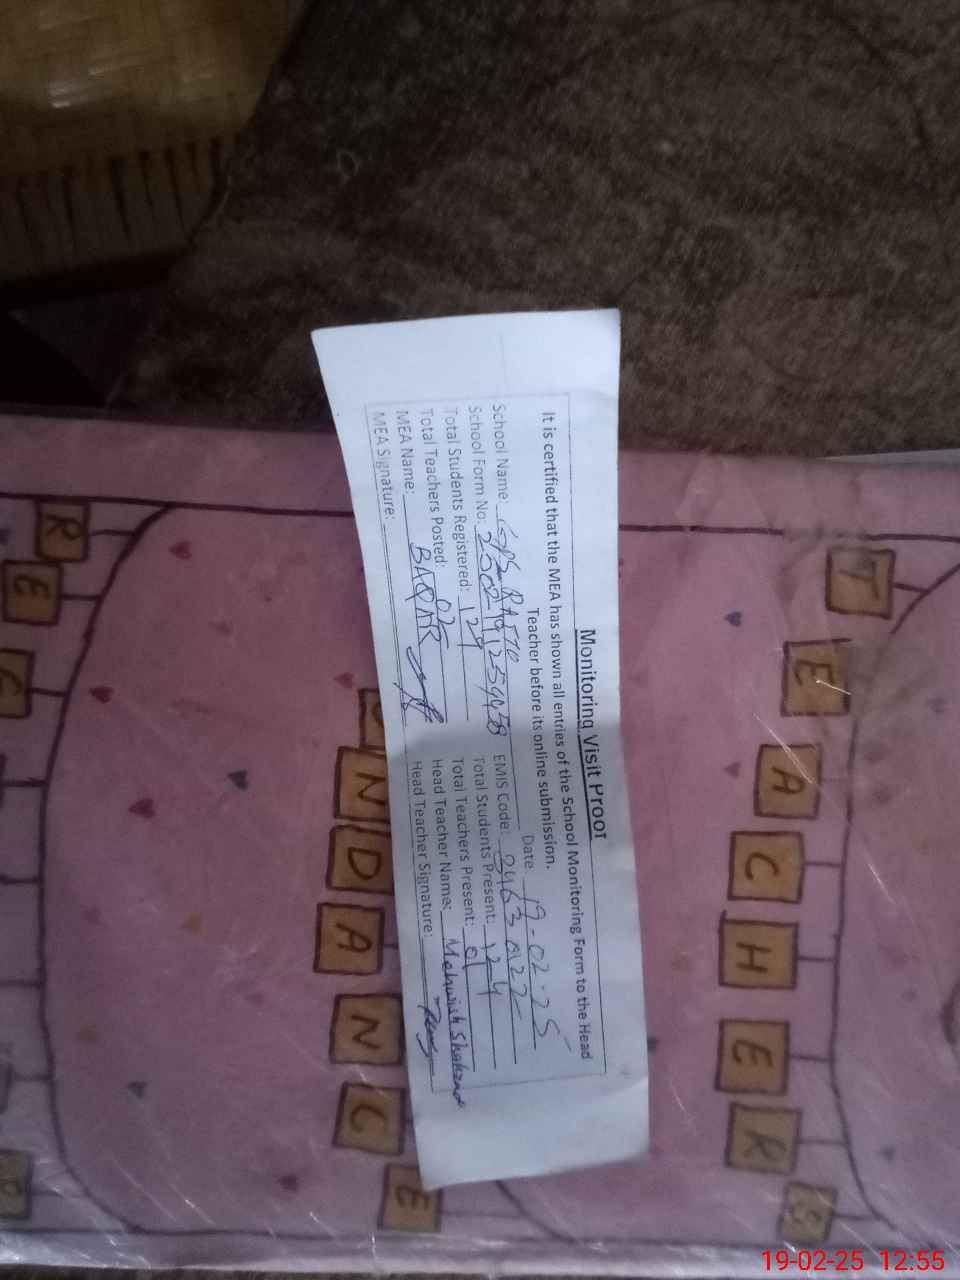 Monitoring Visit Proof
It is certified that the MEA has shown all entries of the School Monitoring Form to the Head
Teacher before its online submission.
Date: 19-02-25
School Name: GPS
EMIS Code:
School Form No:
Total Students Present: 124
Total Students Registered: 129
Total Teachers Present: 01
Total Teachers Posted: 02
Head Teacher Name: Mehwish
MEA Name: BAQAR
Head Teacher Signature:
MEA Signature:
TEACHERS
REG
ENDANCE
19-02-25 12:55